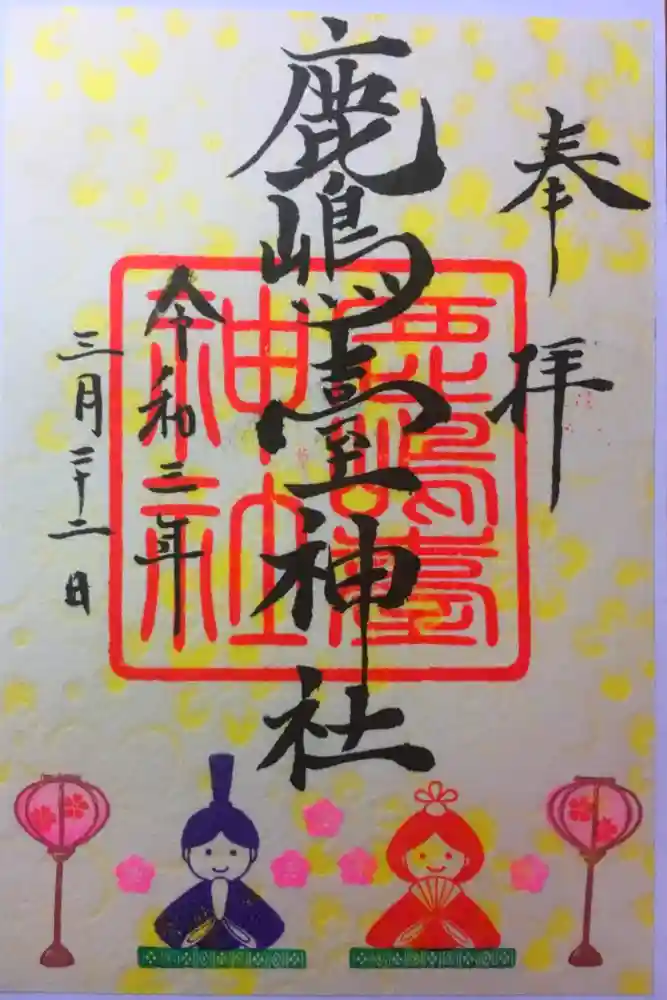 奉拝
鹿嶋臺神社
鹿嶋臺
神社
令和三年
三月二十二日